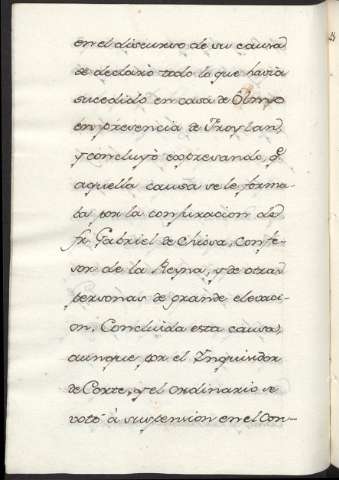 en el discurso de su causa
se declaró todo lo que havia
sucedido en casa de Olmo
en presencia de Froylan,
y concluyó expresando, q.e
aquella causa se le forma-
ba por la conjuracion de
fr. Gabriel de Chiosa, confe-
sor de la Reyna, y de otras
personas de grande elevaci-
on. Concluida esta causa,
aunque por el Ynquisidor
de Corte, y el ordinario se
votó à suspension en el Con-